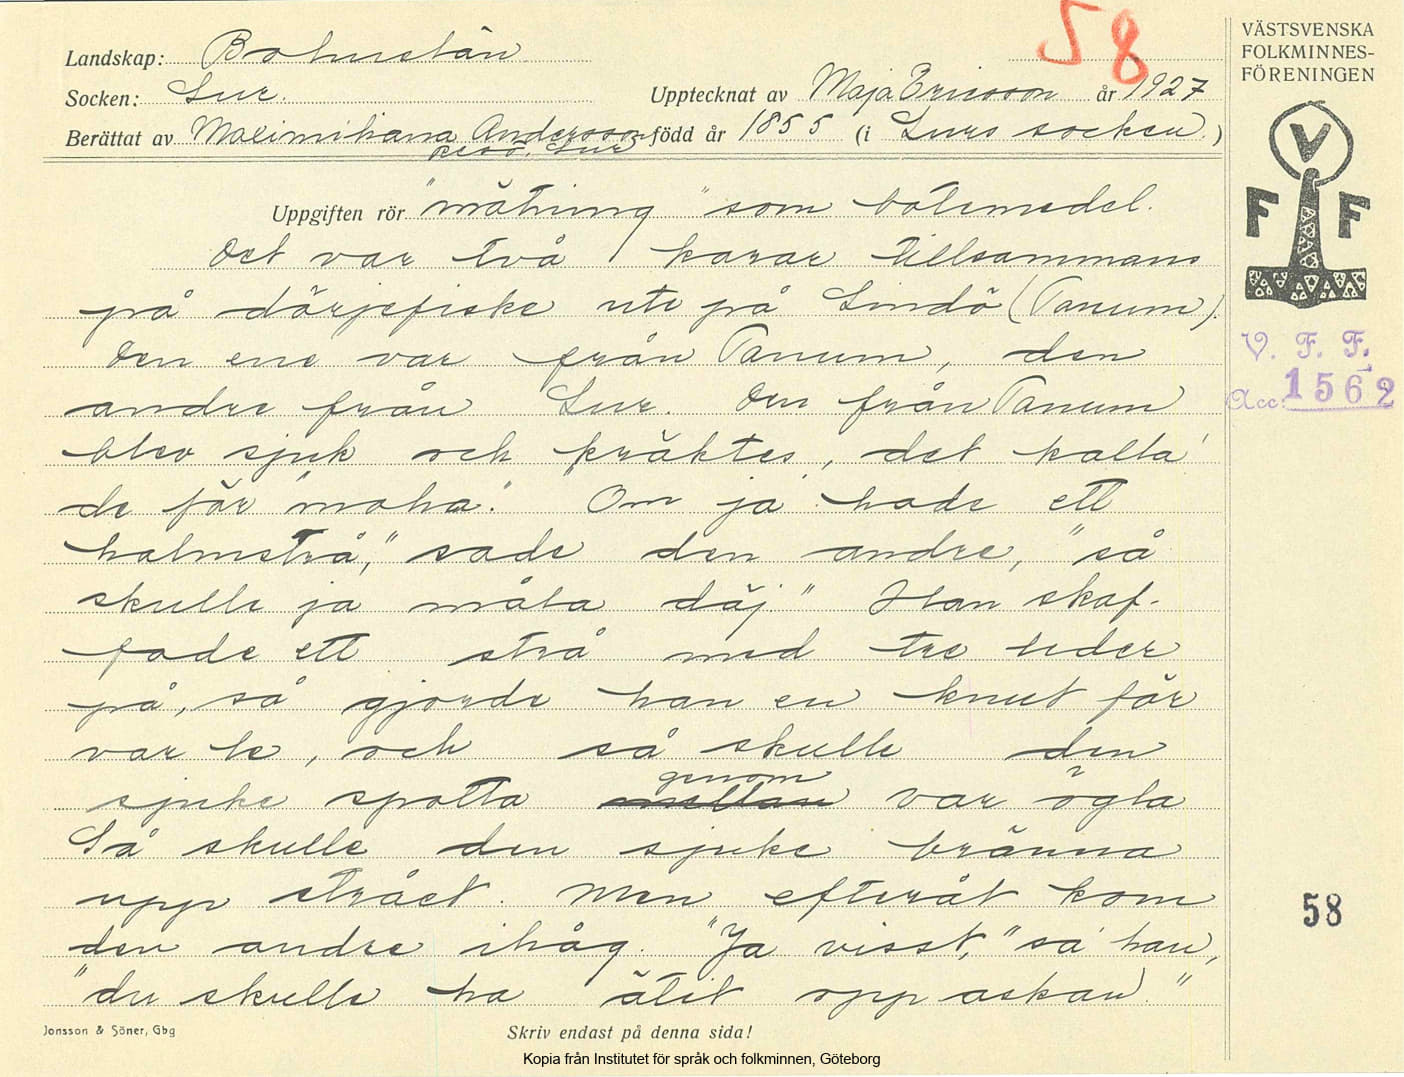 58
VÄSTSVENSKA
FOLKMINNES-
FÖRENINGEN
Landskap: Bohuslän
Socken: Lur.
Upptecknat av Maja Ericsson år 1927
Berättat av Maximiliana Andersson född år 1855 (i Lurs socken.)
Resö, Lur
V
F F
Uppgiften rör "mätning" som botemedel.
Det var två karar tillsammans
på dörjefiske ute på Lindö (Tanum).
Den ene var från Tanum, den
andre från Lur. Den från Tanum
blev sjuk och kräktes, det kalla'
de för "moha". "Om ja hade ett
halmstrå," sade den andre, "så
skulle ja måla däj." Han skaf-
fade ett strå med tre leder
på, så gjorde han en knut för
var le, och så skulle den
sjuke spotta mellan genom var ögla
Så skulle den sjuke bränna
upp strået. Men efteråt kom
den andre ihåg. "Ja visst," sa' han,
"du skulle ha ätit opp askan."
V. F. F.
Acc: 1562
58
Jonsson & Söner, Gbg
Skriv endast på denna sida!
Kopia från Institutet för språk och folkminnen, Göteborg